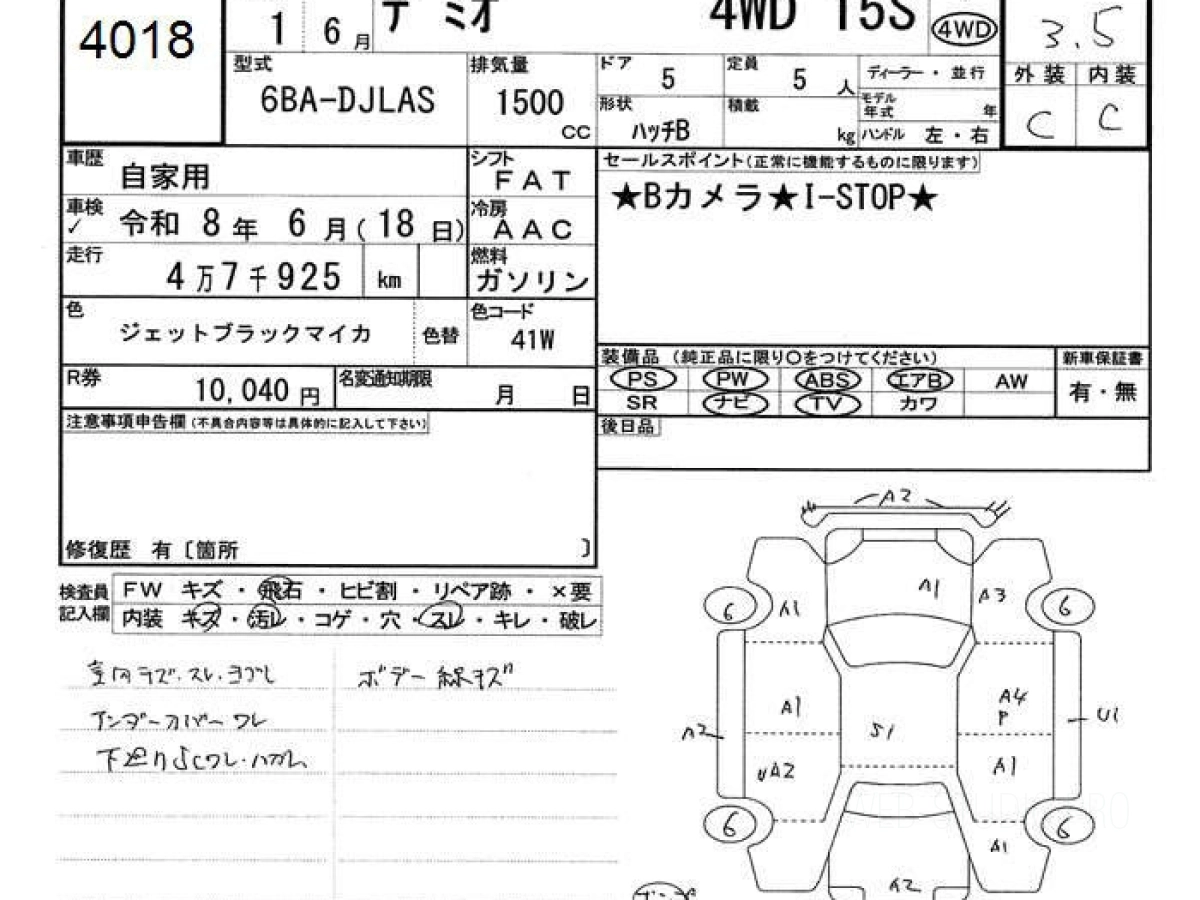 4018
1 6月 デミオ 4WD 15S 4WD 3.5
型式 6BA-DJLAS 排気量 1500 CC
ドア 5 定員 5 人 ディーラー・並行 外装 内装
形状 ハッチB 積載 kg モデル年式 年
ハンドル 左・右 C C
車歴 自家用 シフト FAT
車検 ✓ 令和 8年 6月(18日) 冷房 AAC
走行 4万7千925 km 燃料 ガソリン
色 ジェットブラックマイカ 色替 色コード 41W
R券 10,040 円 名変通知期限 月 日
セールスポイント(正常に機能するものに限ります)
★Bカメラ★I-STOP★
装備品 (純正品に限り○をつけてください) 新車保証書
PS PW ABS エアB AW 有・無
SR ナビ TV カワ
後日品
注意事項申告欄(不具合内容等は具体的に記入して下さい)
修復歴 有〔箇所 〕
検査員記入欄
FW キズ・飛石・ヒビ割・リペア跡・×要
内装 キズ・汚レ・コゲ・穴・スレ・キレ・破レ
室内キズ.スレ.ヨゴレ
ボデー 線キズ
アンダーカバー ワレ
下廻り
A2
A1
A3
A1
6
6
A1
A4
P
U1
A2
S1
A2
A1
6
6
A1
A2